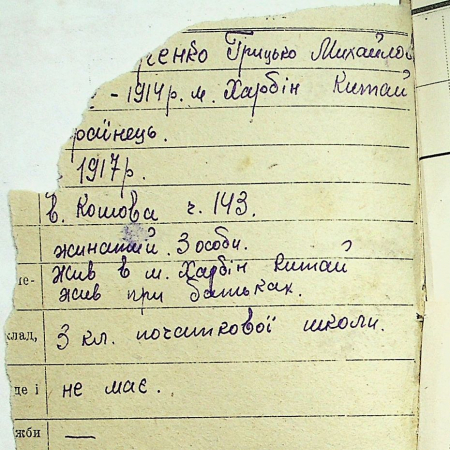 ченко Грицько Михайлов
- 1914 р. м. Харбін Китай
раїнець.
1917 р.
в. Кошова ч. 143.
жинатий. 3 особи.
ле- Жив в м. Харбін Китай
жив при батьках.
клад, 3 кл. початкової школи.
де і не має.
жби —